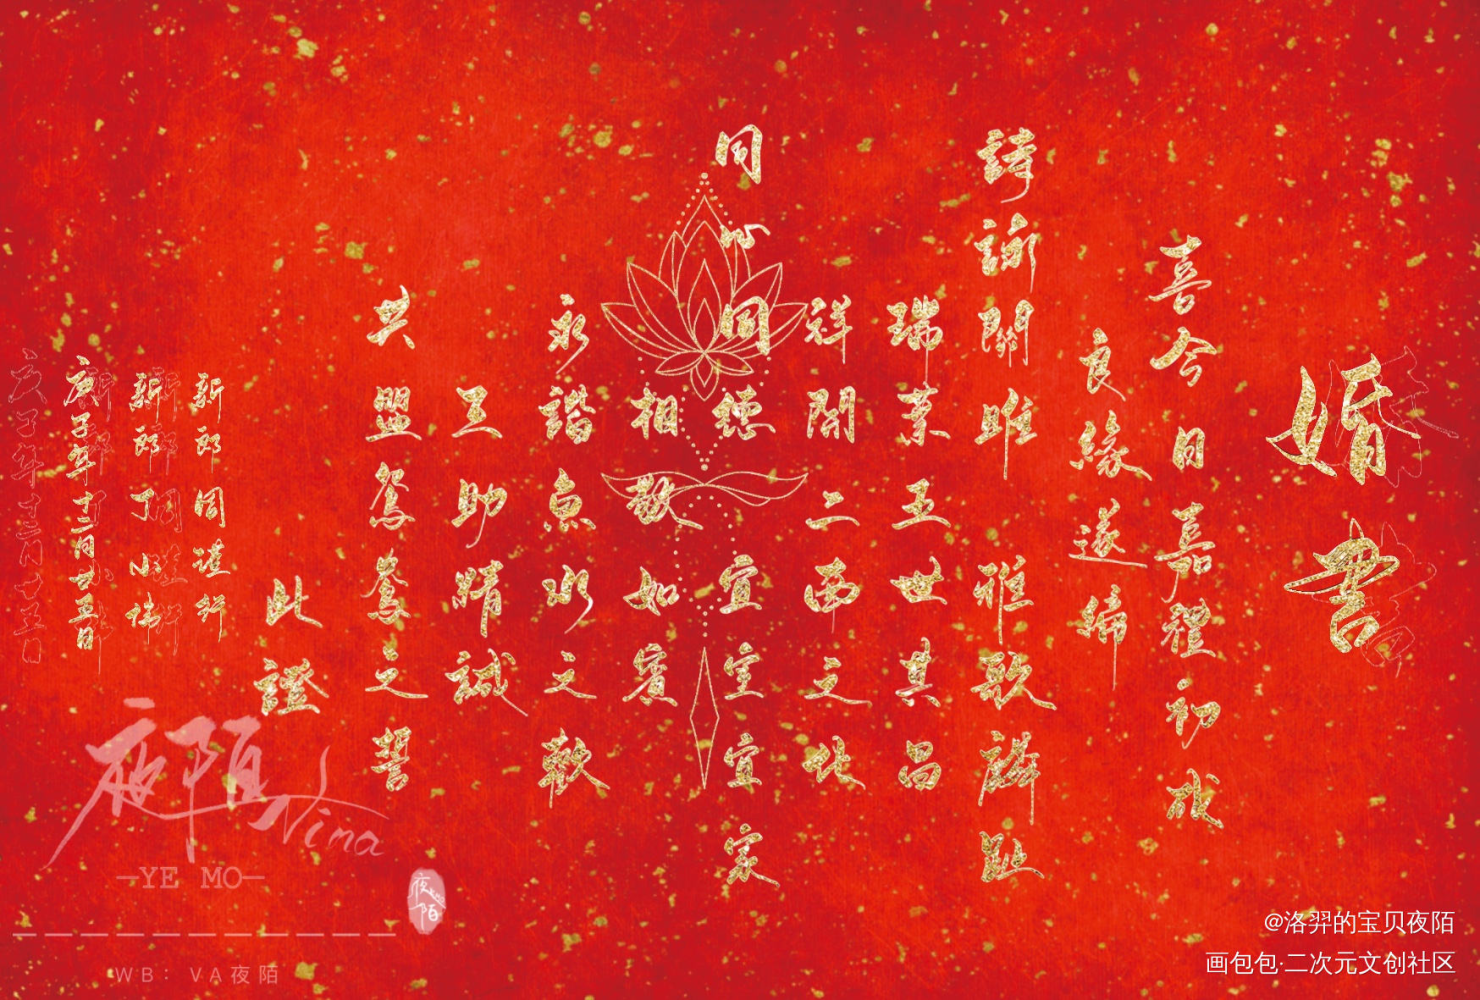 婚書
喜今日嘉禮初成
良緣遂締
詩詠關雎 雅歌麟趾
瑞葉五世其昌
祥開二南之化
同心同德 宜室宜家
相敬如賓
永諧魚水之歡
互助精誠
共盟鴛鴦之誓
此證
新郎 周
新郎 丁小
庚子年十二月廿五日
夜陌
Nina
—YE MO—
夜陌
WB：VA夜陌
@洛羿的宝贝夜陌
画包包·二次元文创社区